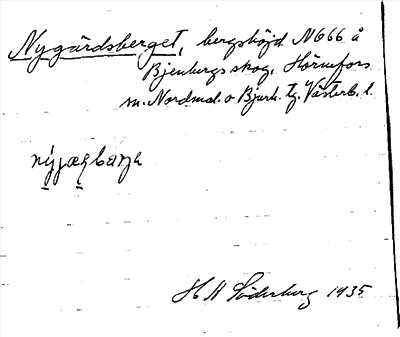 Nygårdsberget, bergshöjd N666 å
Bjenbergs skog. Hörnefors
sn. Nordmal. o Bjurh. tg. Västerb. l.
H Söderberg 1935